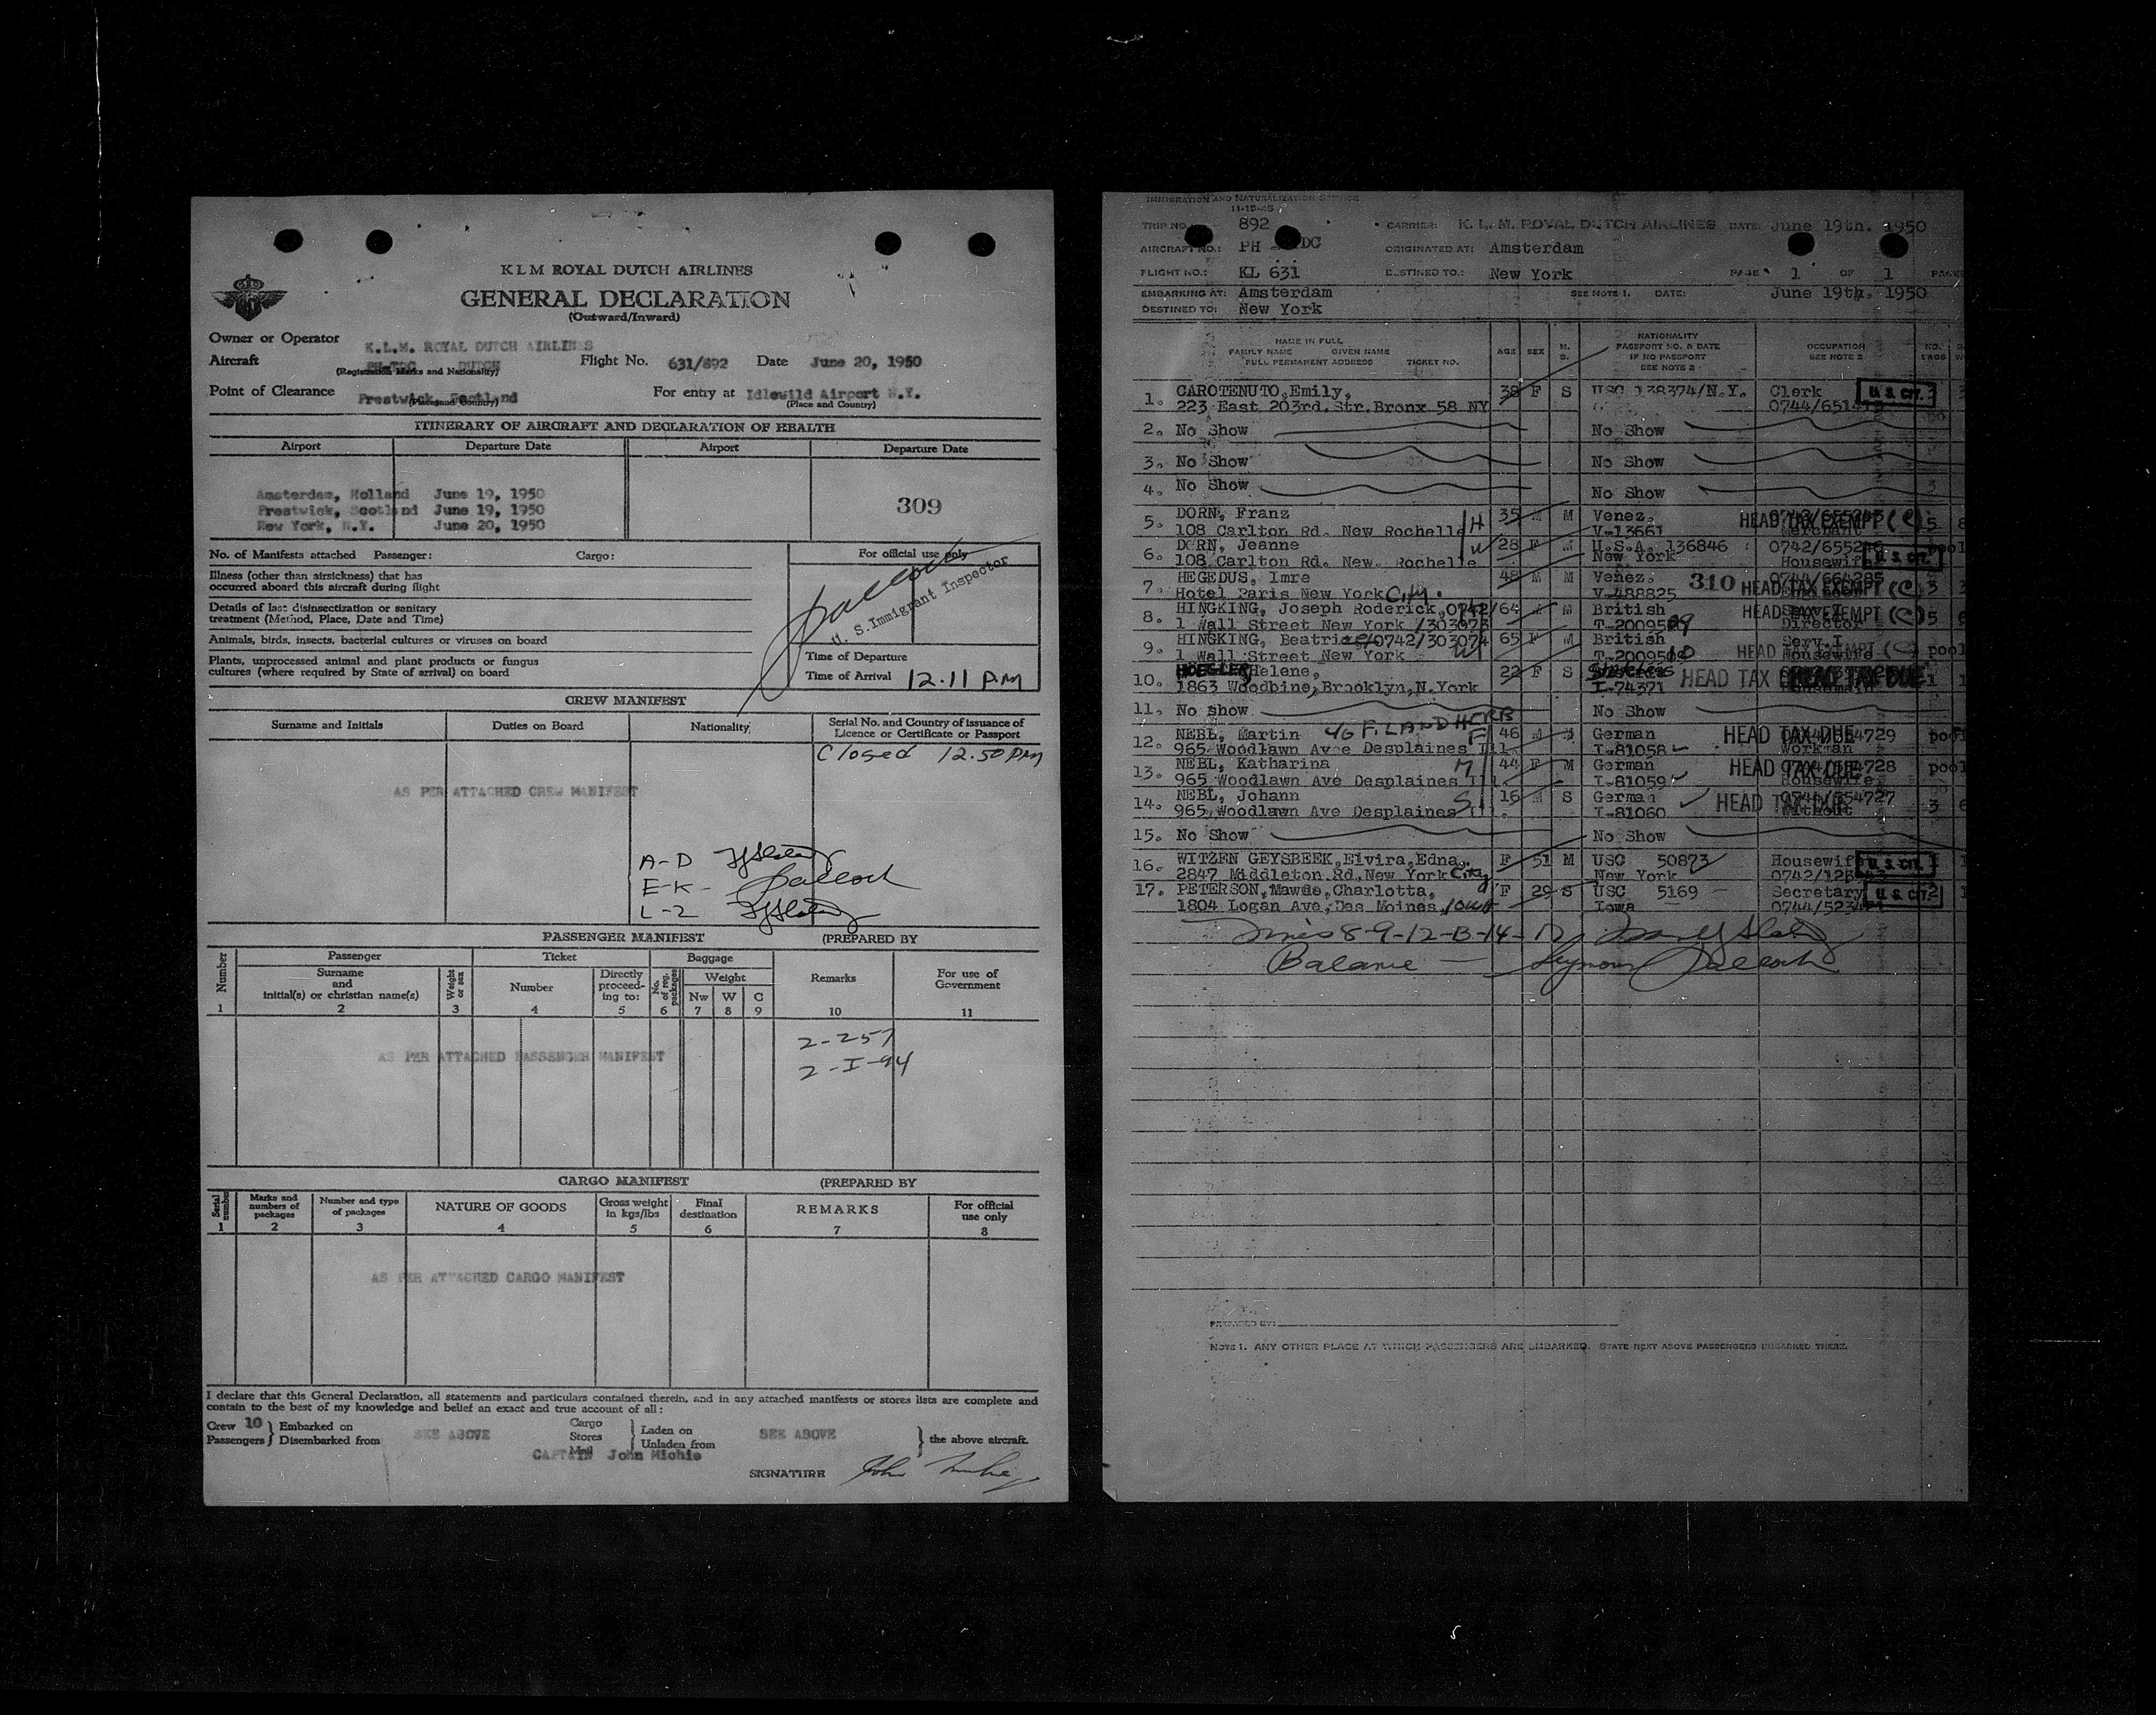 KLM ROYAL DUTCH AIRLINES
GENERAL DECLARATION
(Outward/Inward)
Owner or Operator K.L.M. ROYAL DUTCH AIRLINES
Aircraft DUTCH Flight No. 631/892 Date June 20, 1950
(Registration Marks and Nationality)
Point of Clearance Prestwick, Scotland For entry at Idlewild Airport N.Y.
(Place and Country) (Place and Country)
ITINERARY OF AIRCRAFT AND DECLARATION OF HEALTH
Airport Departure Date Airport Departure Date
Amsterdam, Holland June 19, 1950
309
Prestwick, Scotland June 19, 1950
New York, N.Y. June 20, 1950
No. of Manifests attached Passenger: Cargo: For official use only
Illness (other than airsickness) that has
occurred aboard this aircraft during flight
Details of last disinsectization or sanitary
treatment (Method, Place, Date and Time)
U. S. Immigrant Inspector
Animals, birds, insects, bacterial cultures or viruses on board
Plants, unprocessed animal and plant products or fungus
cultures (where required by State of arrival) on board
Time of Departure
Time of Arrival 12.11 PM
CREW MANIFEST
Surname and Initials Duties on Board Nationality Serial No. and Country of issuance of
Licence or Certificate or Passport
Closed 12.50 PM
AS PER ATTACHED CREW MANIFEST
A-D
E-K-
L-Z
PASSENGER MANIFEST (PREPARED BY
Number Passenger Ticket Baggage Remarks For use of
Government
Surname
and
initial(s) or christian name(s)
Weight
or sex
Number Directly
proceed-
ing to:
No.
of reg.
packages
Weight
Nw W C
1 2 3 4 5 6 7 8 9 10 11
2-257
AS PER ATTACHED PASSENGER MANIFEST
2-I-94
CARGO MANIFEST (PREPARED BY
Serial
number
Marks and
numbers of
packages
Number and type
of packages
NATURE OF GOODS
Gross weight
in kgs/lbs
Final
destination
REMARKS
For official
use only
1 2 3 4 5 6 7 8
AS PER ATTACHED CARGO MANIFEST
I declare that this General Declaration, all statements and particulars contained therein, and in any attached manifests or stores lists are complete and
contain to the best of my knowledge and belief an exact and true account of all:
Crew 10 Embarked on SEE ABOVE Cargo Laden on SEE ABOVE the above aircraft.
Passengers Disembarked from Stores Unladen from
Mail
CAPTAIN John Michie
SIGNATURE
IMMIGRATION AND NATURALIZATION SERVICE
11-15-45
TRIP NO. 892 CARRIER: K. L. M. ROYAL DUTCH AIRLINES DATE: June 19th. 1950
AIRCRAFT NO.: PH ORIGINATED AT: Amsterdam
FLIGHT NO.: KL 631 DESTINED TO.: New York PAGE 1 OF 1
EMBARKING AT: Amsterdam SEE NOTE 1. DATE: June 19th. 1950
DESTINED TO: New York
NAME IN FULL
FAMILY NAME GIVEN NAME
FULL PERMANENT ADDRESS TICKET NO.
AGE SEX M.
S.
NATIONALITY
PASSPORT NO. & DATE
IF NO PASSPORT
SEE NOTE 2
OCCUPATION
SEE NOTE 2
1. CAROTENUTO,Emily, 38 F S USC 138374/N.Y. Clerk U. S. CIT.
223 East 203rd.Str.Bronx 58 NY
2. No Show No Show
3. No Show No Show
4. No Show No Show
5. DORN, Franz H 35 M M Venez. HEAD TAX EXEMPT (C) 5
108 Carlton Rd. New Rochelle V-13661 Merchant
6. DORN, Jeanne W 28 F M U.S.A. 136846 pool
108 Carlton Rd. New. Rochelle New York Housewife U. S. CIT.
7. HEGEDUS, Imre 48 M M Venez. 310 0744/664285 HEAD TAX EXEMPT (C) 3
Hotel Paris New York City. V-488825
8. HINGKING, Joseph Roderick,0742/ 64 M M British HEAD TAX EXEMPT (C) 5
1 Wall Street New York /303073 Director
9. HINGKING, Beatrice/0742/303074 65 F M British HEAD TAX EXEMPT (C) pool
1 Wall Street New York W Housewife
10. Helene, 22 F S HEAD TAX DUE
1863 Woodbine,Brooklyn,N.York I-74371
11. No show No Show
12. NEBL, Martin F 46 M M German HEAD TAX DUE
965 Woodlawn Ave Desplaines Ill. I-81058 Workman
13. NEBL, Katharina M 44 F M German HEAD TAX DUE pool
965 Woodlawn Ave Desplaines Ill. I-81059 Housewife
14. NEBL, Johann S 16 M S German 0744/654727 HEAD TAX DUE 3
965,Woodlawn Ave Desplaines Ill. I-81060 Without
15. No Show No Show
16. WITZEN GEYSBEEK,Elvira,Edna. F 51 M USC 50873 Housewife U. S. CIT.
2847 Middleton.Rd,New York City New York
17. PETERSON,Mawde,Charlotta, F 29 S USC 5169 Secretary U. S. CIT. 2
1804 Logan Ave,Des Moines, IOWA Iowa
Balance
PREPARED BY:
NOTE 1. ANY OTHER PLACE AT WHICH PASSENGERS ARE EMBARKED. STATE NEXT ABOVE PASSENGERS EMBARKED THERE.